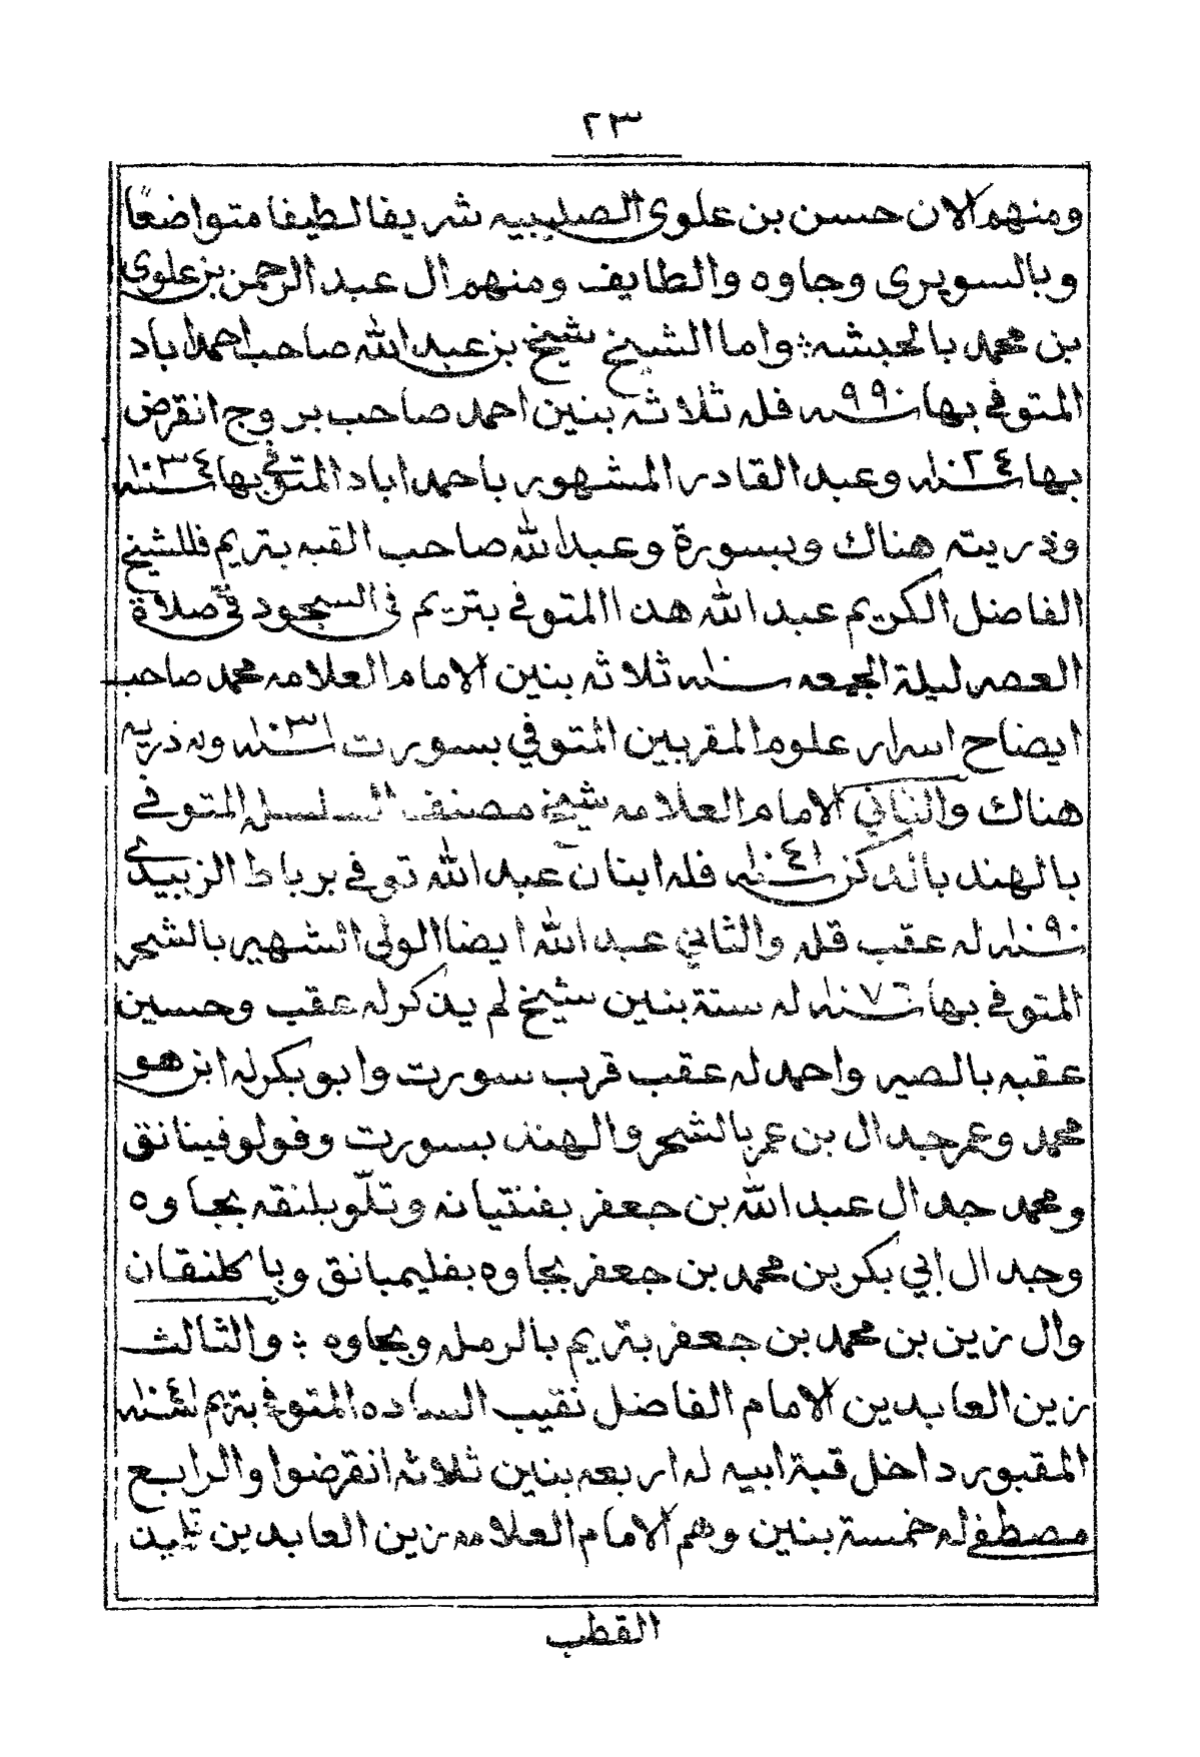 ٢٣
ومنهم الان حسن بن علوي الصليبيه شريفا لطيفا متواضعًا
وبالسويرى وجاوه والطايف ومنهم ال عبد الرحمن بن علوي
بن محمد بالحبشه؛ واما الشيخ شيخ بن عبد الله صاحب احمد اباد
المتوفي بها سنه ٩٩٠ فله ثلاثه بنين احمد صاحب بروج انقرض
بها سنه ١٠٢٤ وعبد القادر المشهور باحمد اباد المتوفي بها سنه ١٠٣٤
وذريته هناك وبسورة وعبد الله صاحب القبه بتريم فللشيخ
الفاضل الكريم عبد الله هذا المتوفي بتريم في السجود في صلاة
العصر ليلة الجمعه سنه ثلاثه بنين الامام العلامه محمد صاحب
ايضاح اسرار علوم المقربين المتوفي بسورت سنه ١٠٣١ وله ذريه
هناك والثاني الامام العلامه شيخ مصنف السلسله المتوفي
بالهند بالدكن سنه ١٠٤١ فله ابنان عبد الله توفي برباط الزبيدي
سنه ١٠٩٠ له عقب قله والثاني عبد الله ايضا الولي الشهير بالشحر
المتوفي بها سنه ١٠٧٦ له ستة بنين شيخ لم يذكر له عقب وحسين
عقبه بالصير واحمد له عقب قرب سورت وابو بكر له ابن هو
محمد وعمر جد ال بن عمر بالشحر والهند بسورت وفولوفينانق
ومحمد جد ال عبد الله بن جعفر بفنتيانه وتلّوبلنقه بجاوه
وجد ال ابي بكر بن محمد بن جعفر بجاوه بفليمبانق وبا كلنقان
وال زين بن محمد بن جعفر بتريم بالرمله وبجاوه ؛ والثالث
زين العابدين الامام الفاضل نقيب الساده المتوفي بتريم سنه ١٠٤١
المقبور داخل قبة ابيه له اربعه بنين ثلاثه انقرضوا والرابع
مصطفى له خمسة بنين وهم الامام العلامه زين العابدين
القطب